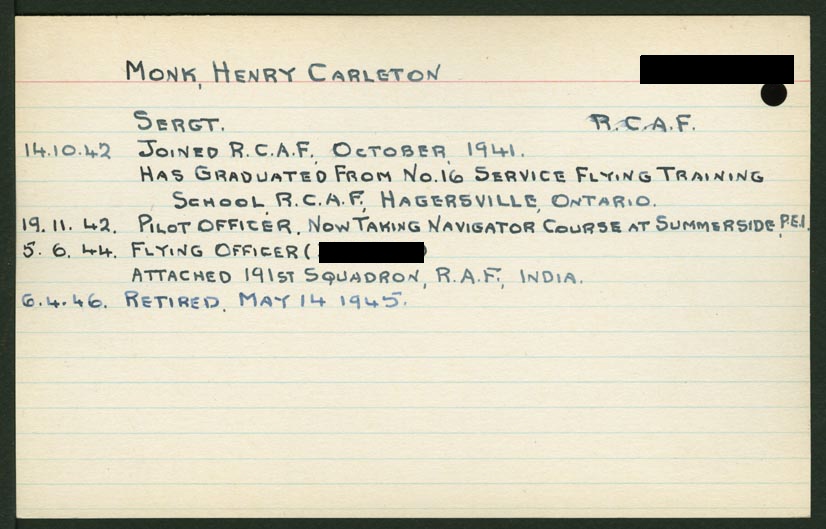 MONK, HENRY CARLETON
SERGT. R.C.A.F.
14.10.42 JOINED R.C.A.F. OCTOBER, 1941.
HAS GRADUATED FROM NO.16 SERVICE FLYING TRAINING
SCHOOL, R.C.A.F., HAGERSVILLE, ONTARIO.
19.11.42. PILOT OFFICER. NOW TAKING NAVIGATOR COURSE AT SUMMERSIDE, P.E.I.
5.6.44. FLYING OFFICER ( )
ATTACHED 191ST SQUADRON, R.A.F., INDIA.
6.4.46. RETIRED, MAY 14 1945.